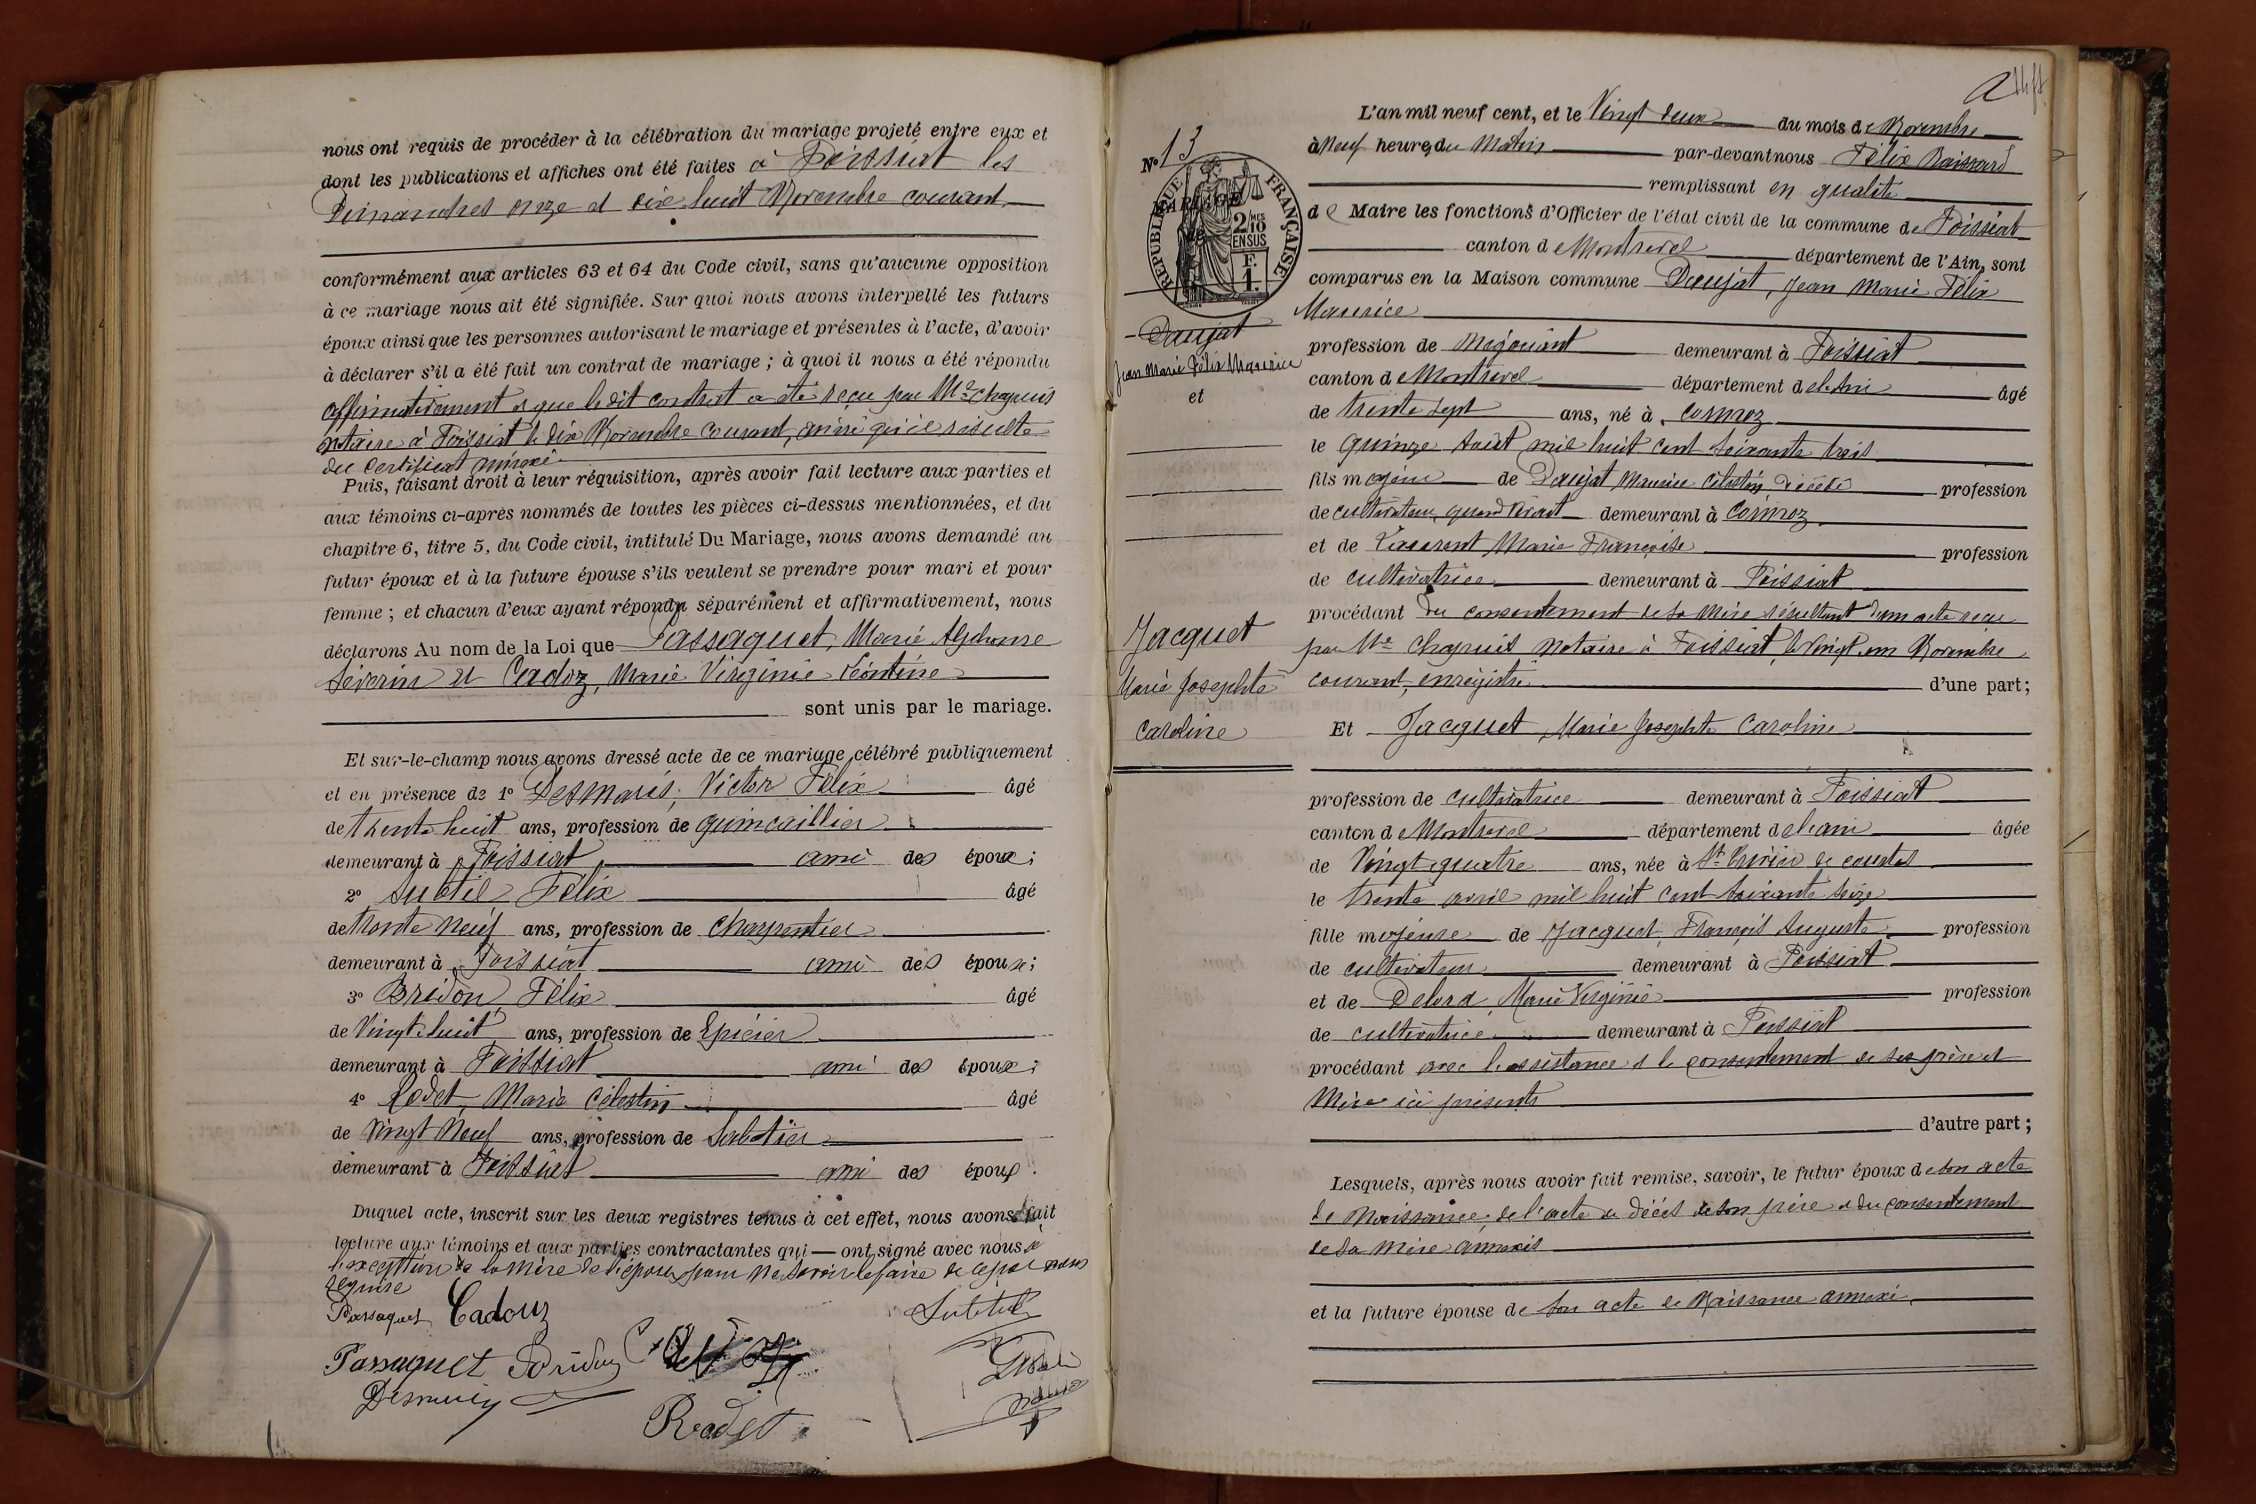 nous ont requis de procéder à la célébration du mariage projeté entre eux et
dont les publications et affiches ont été faites à Foissiat les
Dimanches onze et dix-huit Novembre courant
conformément aux articles 63 et 64 du Code civil, sans qu'aucune opposition
à ce mariage nous ait été signifiée. Sur quoi nous avons interpellé les futurs
époux ainsi que les personnes autorisant le mariage et présentes à l'acte, d'avoir
à déclarer s'il a été fait un contrat de mariage ; à quoi il nous a été répondu
affirmativement et que le dit contrat a été reçu par Me Chapuis
notaire à Foissiat le dix Novembre courant, ainsi qu'il résulte
du certificat annexé
Puis, faisant droit à leur réquisition, après avoir fait lecture aux parties et
aux témoins ci-après nommés de toutes les pièces ci-dessus mentionnées, et du
chapitre 6, titre 5, du Code civil, intitulé Du Mariage, nous avons demandé au
futur époux et à la future épouse s'ils veulent se prendre pour mari et pour
femme ; et chacun d'eux ayant répondu séparément et affirmativement, nous
déclarons Au nom de la Loi que Passaquet, Marie Alphonse
Séverin et Cadoz, Marie Virginie Léontine
sont unis par le mariage.
Et sur-le-champ nous avons dressé acte de ce mariage, célébré publiquement
et en présence de 1° Desmaris, Victor Félix âgé
de trente huit ans, profession de quincaillier
demeurant à Foissiat ami des époux ;
2° Subtil, Félix âgé
de trente neuf ans, profession de charpentier
demeurant à Foissiat ami des époux ;
3° Bridon, Félix âgé
de Vingt-huit ans, profession de Epicier
demeurant à Foissiat ami des époux ;
4° Rodet, Marie Célestin âgé
de vingt Neuf ans, profession de Sabotier
demeurant à Foissiat ami des époux.
Duquel acte, inscrit sur les deux registres tenus à cet effet, nous avons fait
lecture aux témoins et aux parties contractantes qui — ont signé avec nous à
l'exception de la mère de l'époux pour ne savoir le faire de ce par nous
requise
Passaquet Cadouz Subtil
Passaquet Bridon
Desmaris
Rodet
N° 13
MARIAGE
RÉPUBLIQUE FRANÇAISE
2/10 MES
EN SUS
F.
1.
Daujat
Jean Marie Félix Maurice
et
Jacquet
Marie Josephte
Caroline
L'an mil neuf cent, et le Vingt deux du mois de Novembre
à Neuf heures du Matin par-devant nous Félix Baissard
remplissant en qualité
de Maire les fonctions d'Officier de l'état civil de la commune de Foissiat
canton de Montrevel département de l'Ain, sont
comparus en la Maison commune Daujat, Jean Marie Félix
Maurice
profession de Négociant demeurant à Foissiat
canton de Montrevel département de l'Ain âgé
de trente sept ans, né à Cormoz
le quinze Août mil huit cent soixante trois
fils majeur de Daujat Maurice Célestin, décédé profession
de cultivateur, quand vivait demeurant à Cormoz
et de Marie Françoise profession
de cultivatrice demeurant à Foissiat
procédant du consentement de sa mère résultant d'un acte reçu
par Me Chapuis Notaire à Foissiat, le vingt un Novembre
courant, enregistré d'une part ;
Et Jacquet, Marie Josephte Caroline
profession de cultivatrice demeurant à Foissiat
canton de Montrevel département de l'ain âgée
de Vingt quatre ans, née à St Trivier de courtes
le trente avril mil huit cent soixante seize
fille majeure de Jacquet, François Auguste profession
de cultivateur demeurant à Foissiat
et de Marie Virginie profession
de cultivatrice demeurant à Foissiat
procédant avec l'assistance et le consentement de ses père et
Mère ici présents
d'autre part ;
Lesquels, après nous avoir fait remise, savoir, le futur époux de son acte
de Naissance, de l'acte de décès de son père et du consentement
de sa mère annexés
et la future épouse de son acte de Naissance annexé